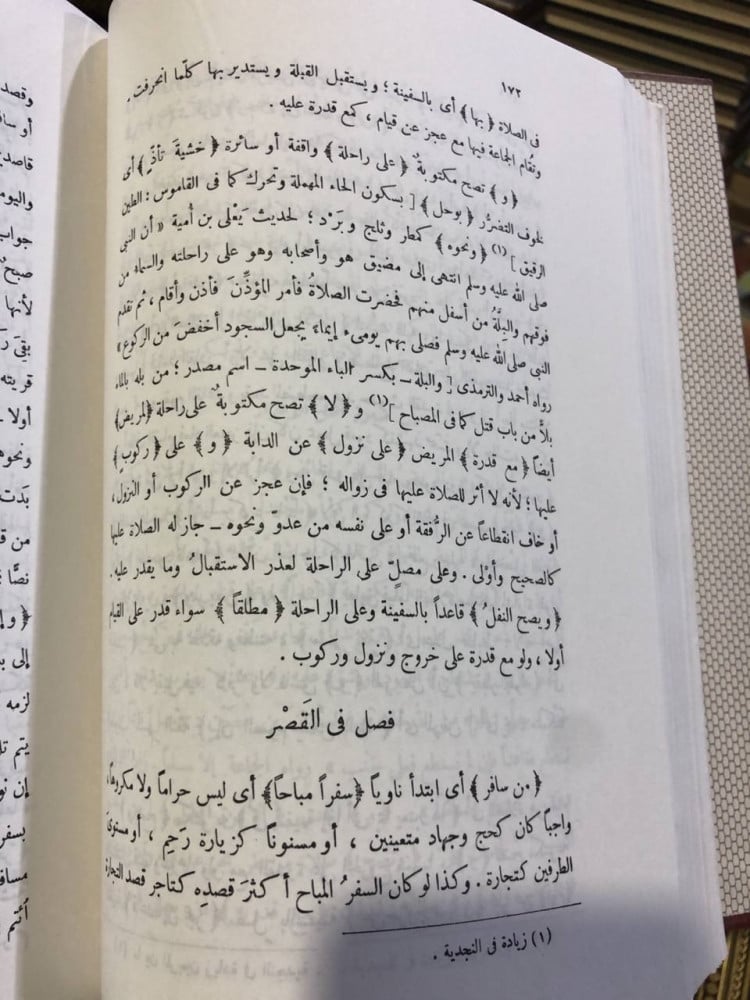 ١٧٢
فى الصلاة ﴿بها﴾ أى بالسفينة ؛ ويستقبل القبلة ويستدير بها كلّما انحرفت .
وتقام الجماعة فيها مع عجز عن قيام ، كمع قدرة عليه .
﴿و﴾ تصح مكتوبةٌ ﴿على راحلة﴾ واقفة أو سائرة ﴿خشيةَ تأذٍّ﴾ أى
لخوف التضرُّر ﴿بوحل﴾ [ بسكون الحاء المهملة وتحرك كما فى القاموس : الطين
الرقيق ] (١) ﴿ونحوه﴾ كمطر وثلج وبَرَد ؛ لحديث يَعْلى بن أُمية « أن النبى
صلى الله عليه وسلم انتهى إلى مضيق هو وأصحابه وهو على راحلته والسماء من
فوقهم والبِلَّةُ من أسفل منهم فحضرت الصلاةُ فأمر المؤذِّنَ فأذن وأقام ، ثم تقدم
النبى صلى الله عليه وسلم فصلى بهم يومىء إيماء يجعل السجود أخفضَ من الركوع »
رواه أحمد والترمذى [ والبلة ــ بكسر الباء الموحدة ــ اسم مصدر ؛ من بله بالماء
بلاًّ من باب قتل كما فى المصباح ](١) و ﴿لا﴾ تصح مكتوبةٌ على راحلة ﴿لمريض﴾
أيضاً ﴿مع قدرة﴾ المريض ﴿على نزول﴾ عن الدابة ﴿و﴾ على ﴿ركوب﴾
عليها ؛ لأنه لا أثر للصلاة عليها فى زواله ؛ فإن عجز عن الركوب أو النزول ،
أو خاف انقطاعاً عن الرُّفقة أو على نفسه من عدوّ ونحوه ــ جاز له الصلاة عليها
كالصحيح وأوْلى . وعلى مصلٍّ على الراحلة لعذر الاستقبالُ وما يقدر عليه .
﴿ويصح النفلُ﴾ قاعداً بالسفينة وعلى الراحلة ﴿مطلقاً﴾ سواء قدر على القيام
أولا ، ولو مع قدرة على خروج ونزول وركوب .
فصل فى القَصْر
﴿من سافر﴾ أى ابتدأ ناوياً ﴿سفراً مباحاً﴾ أى ليس حراماً ولا مكروهاً ،
واجباً كان كحج وجهاد متعينين ، أو مسنوناً كزيارة رَحِم ، أو مستوىَ
الطرفين كتجارة . وكذا لو كان السفرُ المباح أكثرَ قصدِه كتاجر قصد التجارة
(١) زيادة فى النجدية .